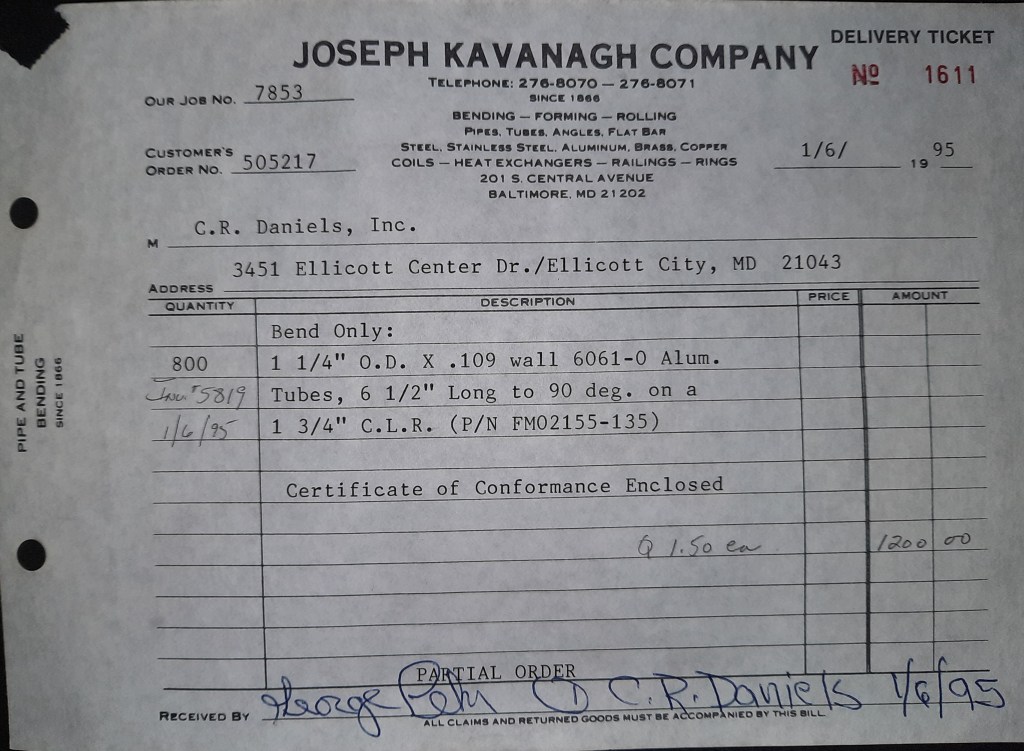 DELIVERY TICKET
JOSEPH KAVANAGH COMPANY
Nº 1611
TELEPHONE: 276-8070 — 276-8071
SINCE 1866
OUR JOB NO. 7853
BENDING — FORMING — ROLLING
PIPES, TUBES, ANGLES, FLAT BAR
STEEL, STAINLESS STEEL, ALUMINUM, BRASS, COPPER
COILS — HEAT EXCHANGERS — RAILINGS — RINGS
CUSTOMER'S
ORDER NO. 505217
1/6/ 19 95
201 S. CENTRAL AVENUE
BALTIMORE, MD 21202
M C.R. Daniels, Inc.
ADDRESS 3451 Ellicott Center Dr./Ellicott City, MD 21043
QUANTITY DESCRIPTION PRICE AMOUNT
Bend Only:
800 1 1/4" O.D. X .109 wall 6061-O Alum.
Inv. #5819 Tubes, 6 1/2" Long to 90 deg. on a
1/6/95 1 3/4" C.L.R. (P/N FM02155-135)
Certificate of Conformance Enclosed
@ 1.50 ea 1200 00
PARTIAL ORDER
RECEIVED BY George C.R. Daniels 1/6/95
ALL CLAIMS AND RETURNED GOODS MUST BE ACCOMPANIED BY THIS BILL
PIPE AND TUBE
BENDING
SINCE 1866